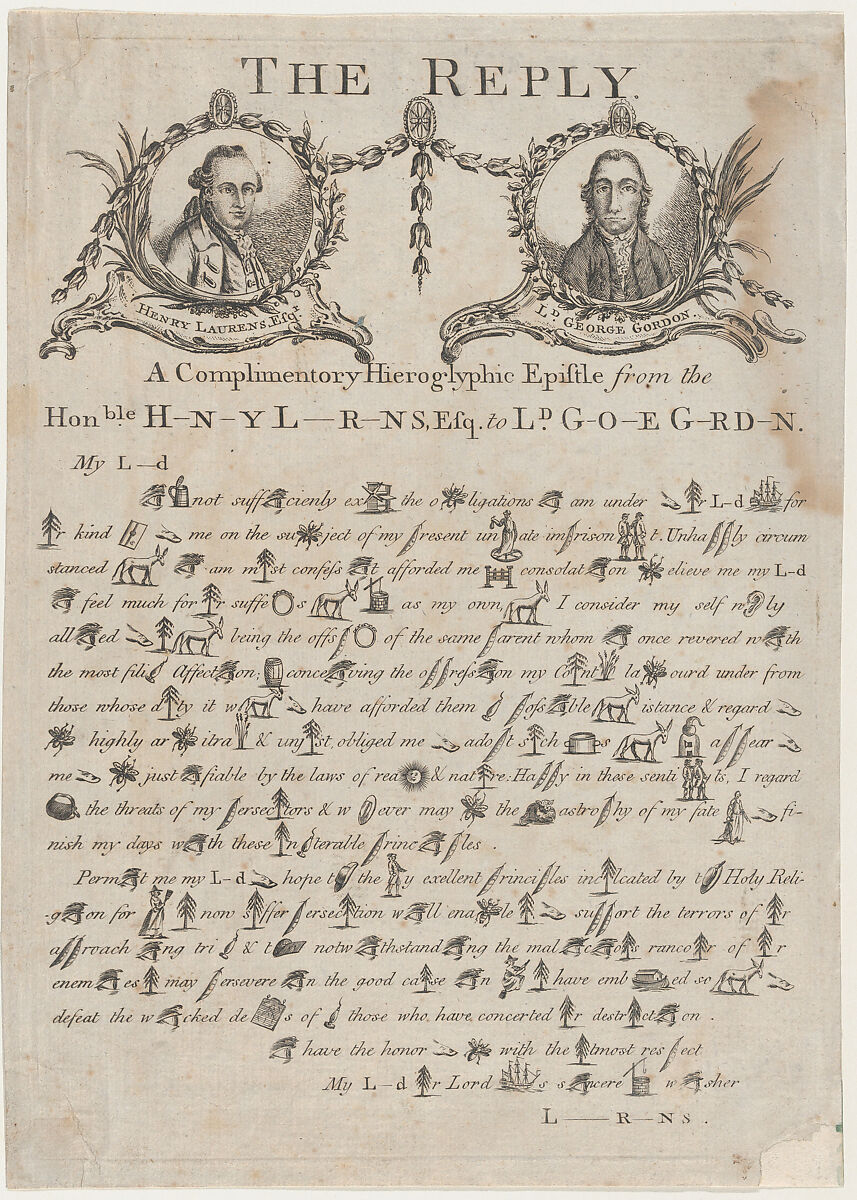 THE REPLY.
HENRY LAURENS, Eſqr
LD GEORGE GORDON.
A Complimentory Hieroglyphic Epiſtle from the
Honble H–N–Y L—R–NS, Eſq. to LD G–O–E G–RD–N.
My L–d
not suff ciently ex the o ligations am under r L-d for
r kind me on the su ject of my resent un ate im rison t. Unha ly circum
stanced am m st confeſs t afforded me consolat on elieve me my L-d
feel much for r suffe s as my own, I consider my self n ly
all ed being the offs of the same arent whom once revered w th
the most fili Affect on; conce ving the o reſs on my Co nt la ourd under from
those whose d ty it w have afforded them oſs ble istance & regard
highly ar itra & unj st, obliged me ado t s ch s a ear
me just fiable by the laws of rea & nat re: Ha y in these senti ts, I regard
the threats of my ersec tors & w ever may the astro hy of my fate fi-
nish my days w th these n terable rinc les.
Perm t me my L–d hope t the y exellent rinci les inc lcated by t Holy Reli-
-g on for now s ffer ersec tion w ll ena le su ort the terrors of r
a roach ng tri & t notw thstand ng the mal c o s ranco r of r
enem es may ersevere n the good ca se n have emb ed so
defeat the w cked de s of those who have concerted r destr ct on.
have the honor with the tmost res ect
My L–d r Lord s s ncere w sher
L—R–NS.